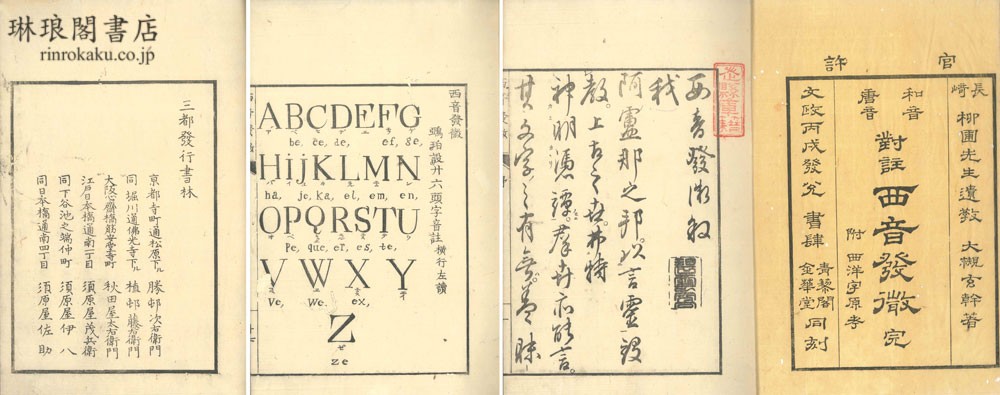 琳琅閣書店
rinrokaku.co.jp
三都發行書林
京都寺町通松原下ル 勝邨次右衛門
同堀川通佛光寺下ル 植邨藤右衛門
大阪心齋橋筋安堂寺町 秋田屋太右衛門
江戸日本橋通南一丁目 須原屋茂兵衛
同下谷池之端仲町 須原屋伊八
同日本橋通南四丁目 須原屋佐助
西音發微
廾六頭字音註 横行左讀
ABCDEFG
be, ce, de, ef, ge,
HijKLMN
ha, je, ka, el, em, en,
OPQRSTU
pe, que, er, es, te,
VWXY
ve, we, ex,
Z
ゼ
ze
西音發微敘
我
阿盧那之邦。以言霊設
教。上古之世。
神明憑
其文字之有無。
官許
長崎 柳圃先生遺教 大槻玄幹著
和音 唐音 對註 西音發微 完
附 西洋字原考
文政丙戌發兌 書肆 青藜閣 金華堂 同刻